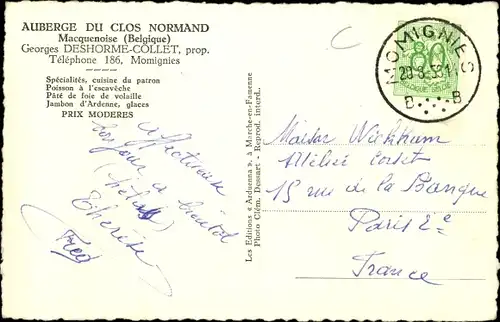 AUBERGE DU CLOS NORMAND
Macquenoise (Belgique)
Georges DESHORME-COLLET, prop.
Téléphone 186, Momignies
Spécialités, cuisine du patron
Poisson à l'escavèche
Pâté de foie de volaille
Jambon d'Ardenne, glaces
PRIX MODERES
Affectueux
bonjour à bientôt
Thérèse
Fred
Les Editions « Arduenna », à Marche-en-Famenne
Photo Clém. Dessart - Reprod. interd.
MOMIGNIES
B B
80
BELGIQUE BELGIE
Maison
Atelier
15 rue de la Banque
Paris 2e
France